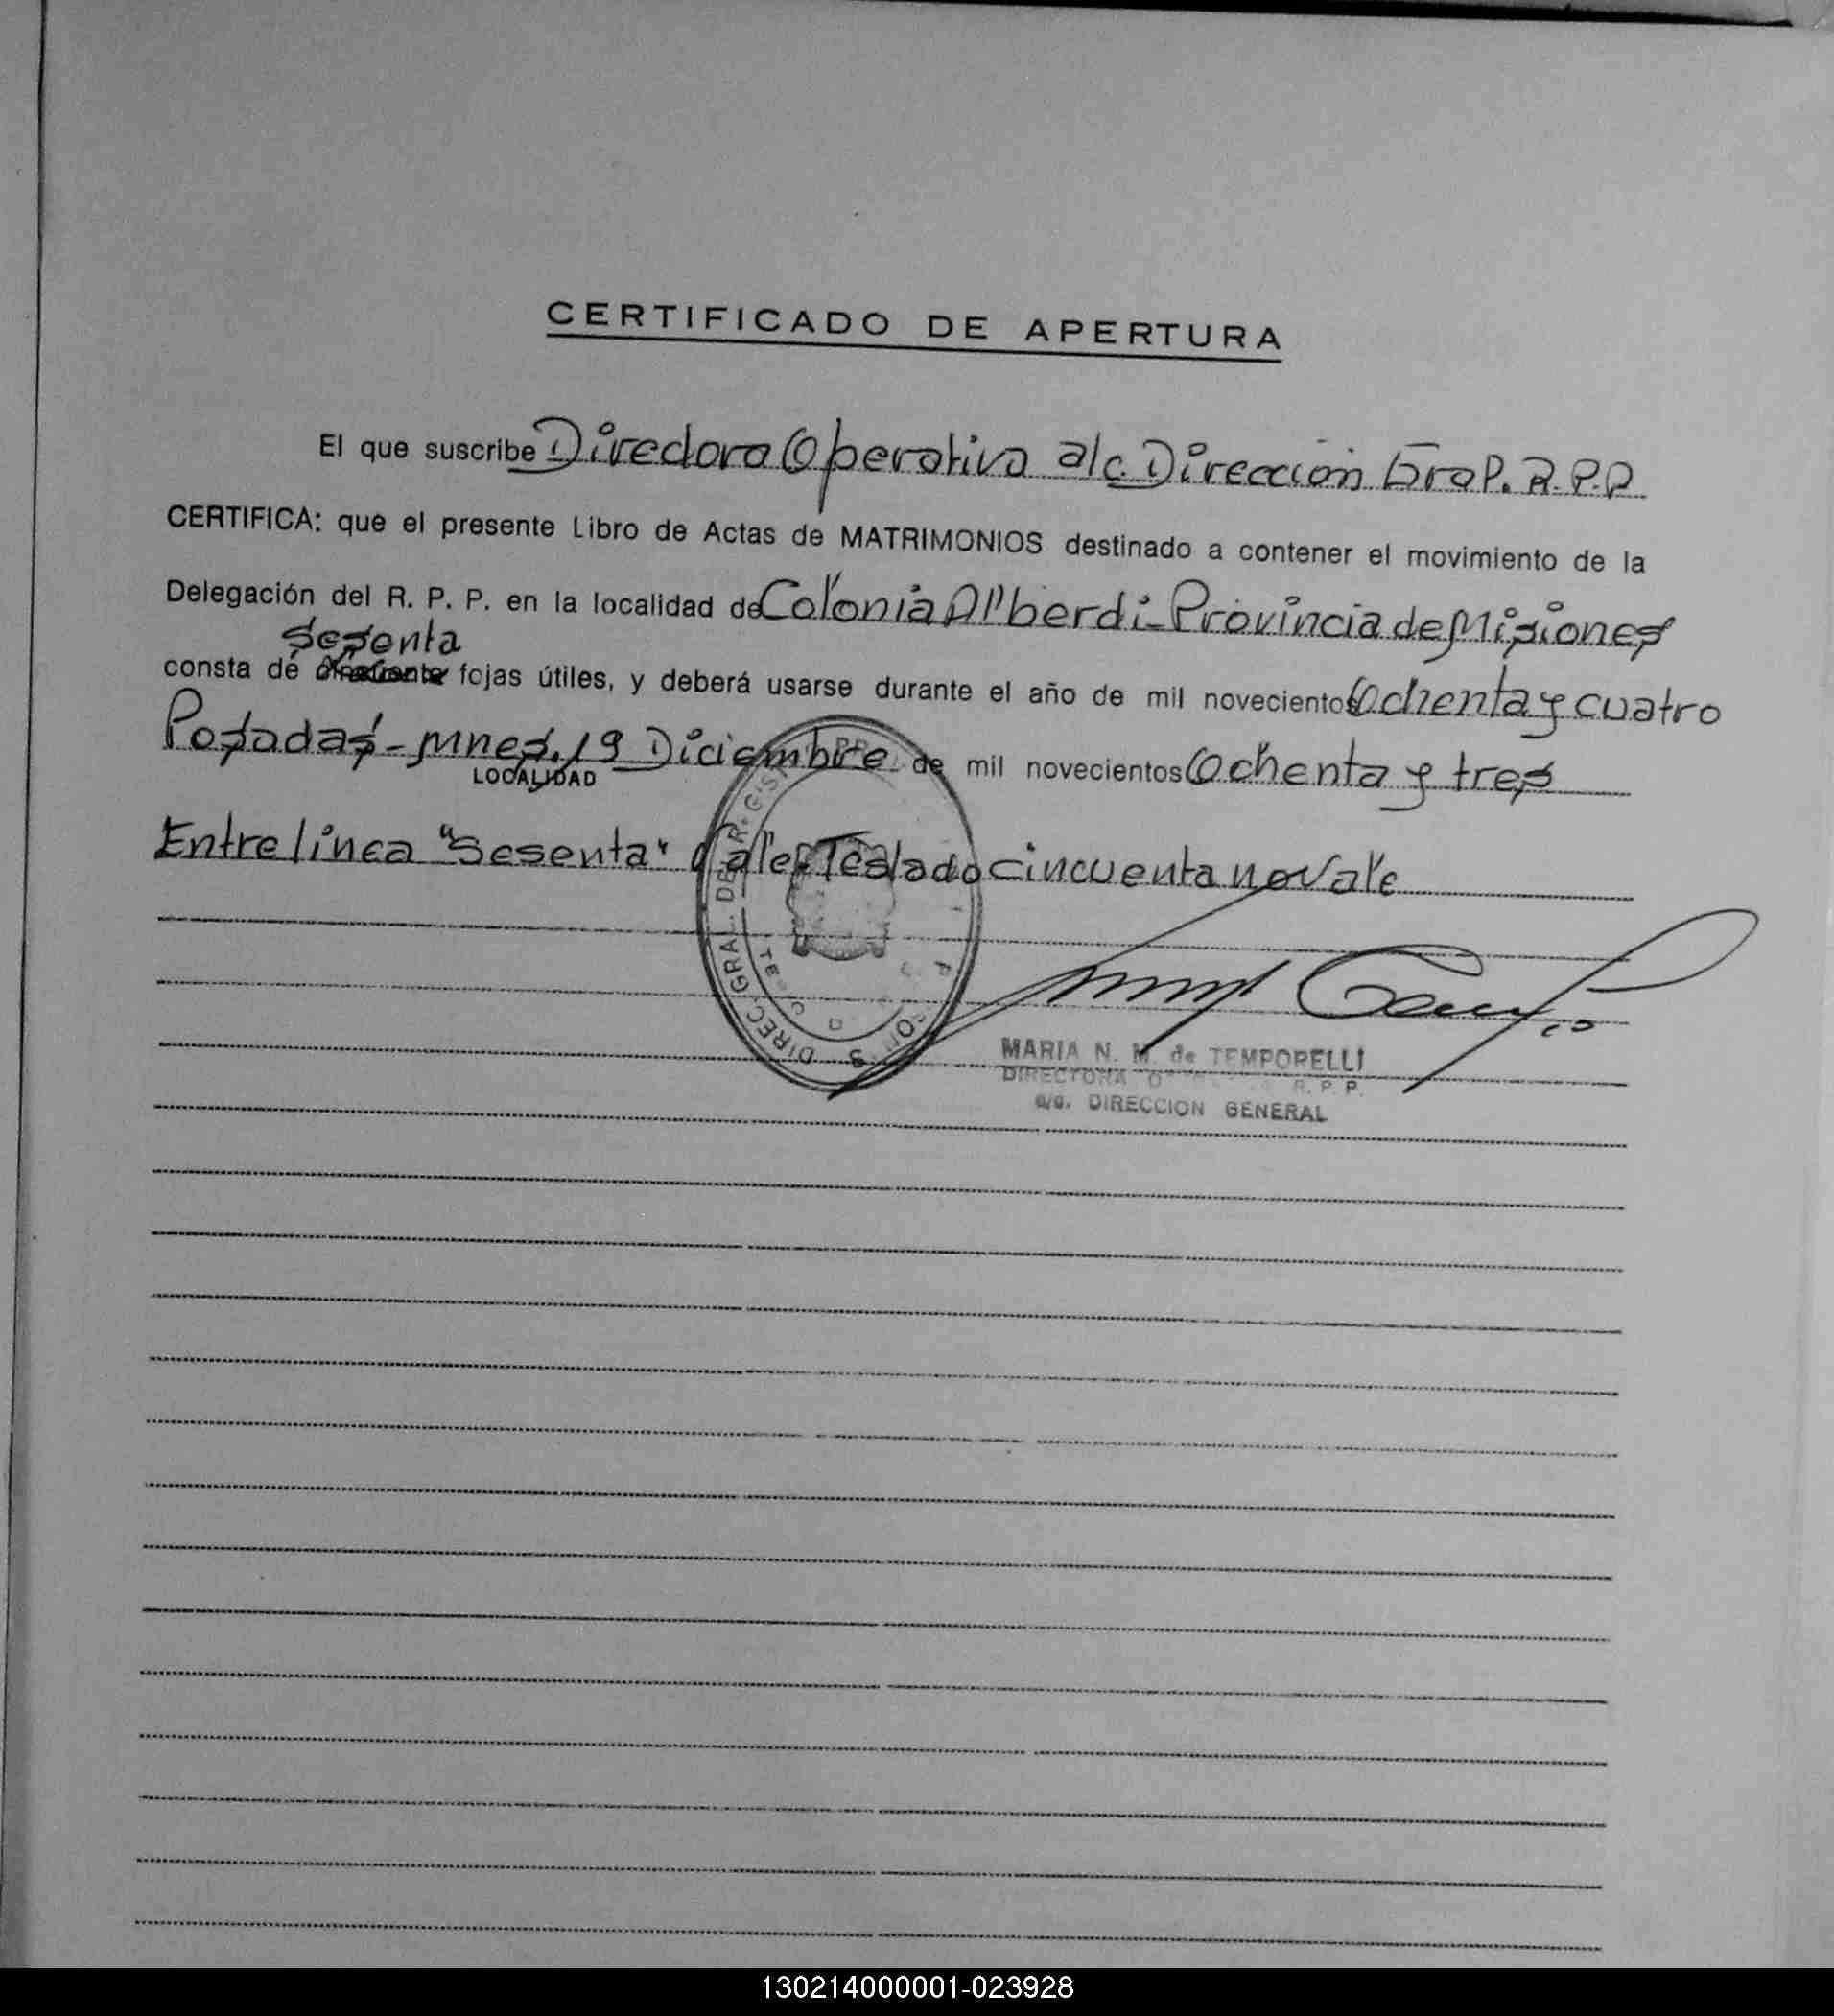 CERTIFICADO DE APERTURA
El que suscribe Directora Operativa a/c. Dirección Gral. R.P.P
CERTIFICA: que el presente Libro de Actas de MATRIMONIOS destinado a contener el movimiento de la
Delegación del R. P. P. en la localidad de Colonia Alberdi - Provincia de Misiones
Sesenta
consta de fojas útiles, y deberá usarse durante el año de mil novecientos Ochenta y cuatro
Posadas - Mnes. 19 Diciembre de mil novecientos Ochenta y tres
LOCALIDAD
Entre línea "Sesenta" Vale. Testado cincuenta no vale
DIREC. GRAL. DE
MARIA N. M. de TEMPORELLI
DIRECTORA R. P. P.
a/c. DIRECCION GENERAL
130214000001-023928